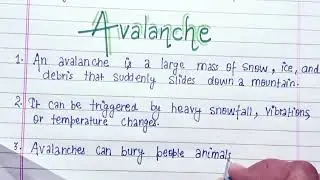 Avalanche
1. An avalanche is a large mass of snow, ice, and
debris that suddenly slides down a mountain.
2. It can be triggered by heavy snowfall, vibrations,
or temperature changes.
3. Avalanches can bury people animals